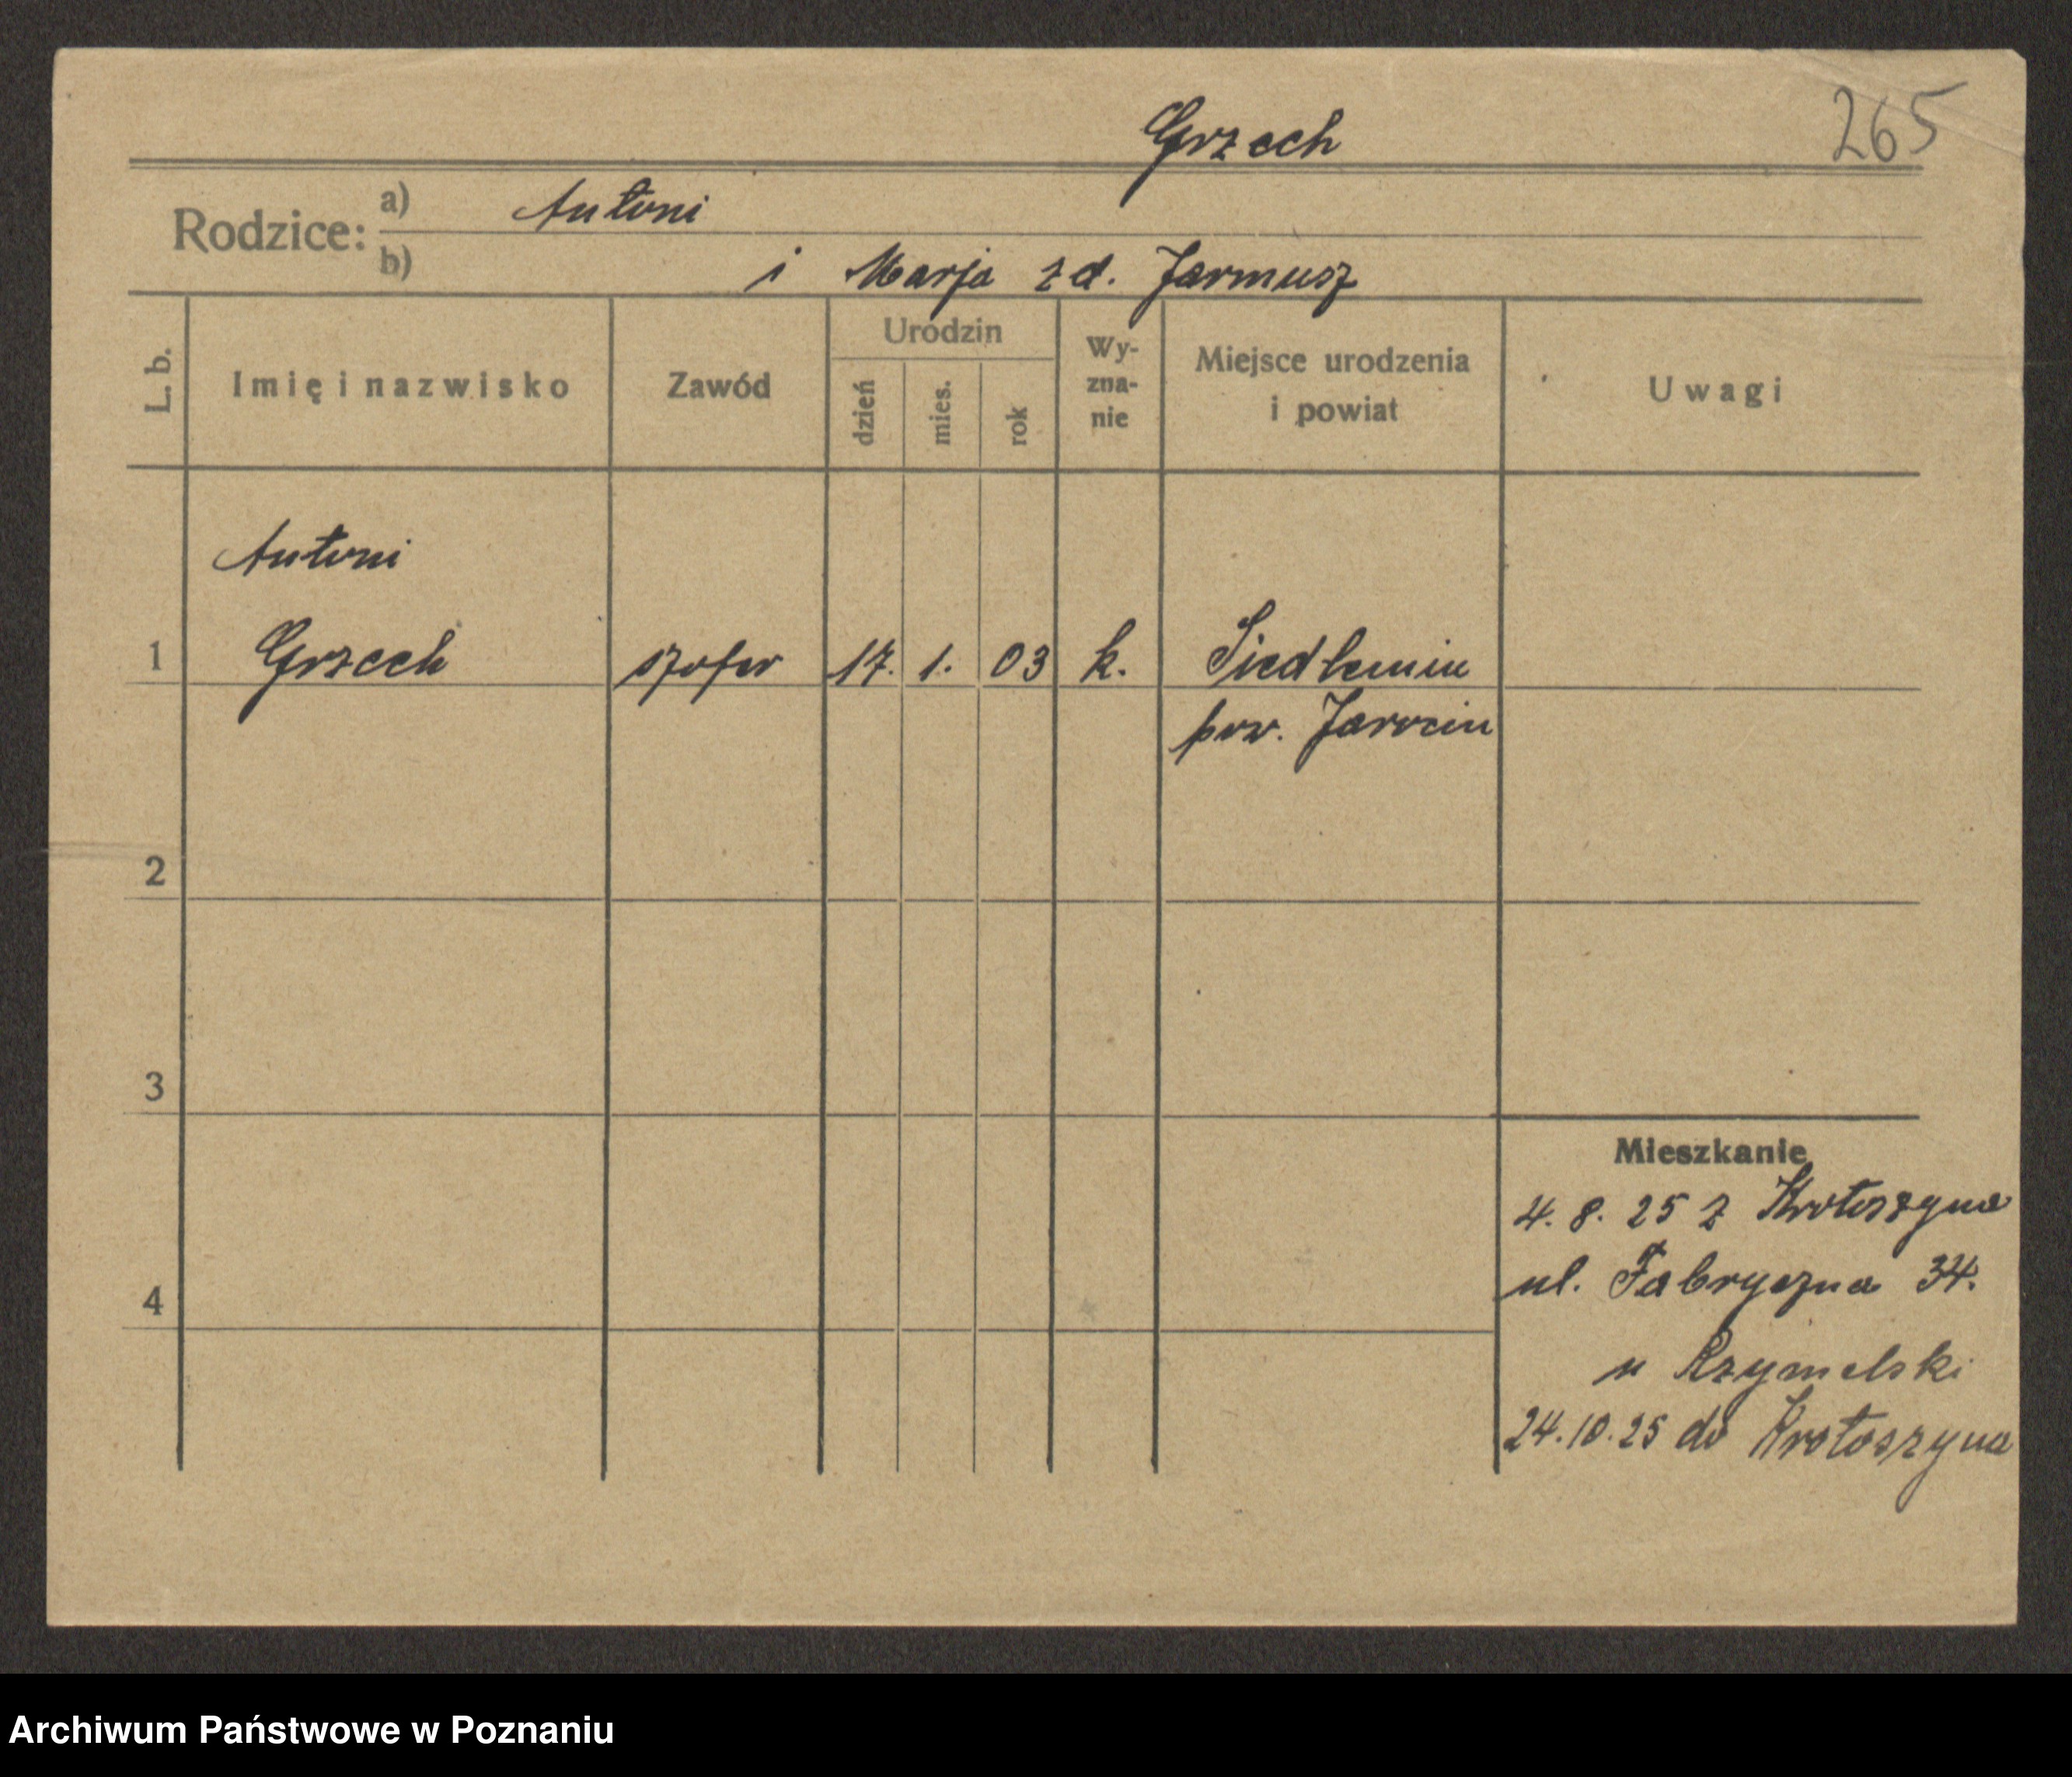 Grzech
265
Rodzice:
a) Antoni
b) i Marja z d. Jarmusz
L. b.
Imię i nazwisko
Zawód
Urodzin
dzień
mies.
rok
Wy-
zna-
nie
Miejsce urodzenia
i powiat
Uwagi
Antoni
1 Grzech szofer 17. 1. 03 k. Siedlemin
pow. Jarocin
2
3
Mieszkanie
4. 8. 25 z Krotoszyna
ul. Fabryczna 34.
4
u Rzymelski
24.10.25 do Krotoszyna
Archiwum Państwowe w Poznaniu